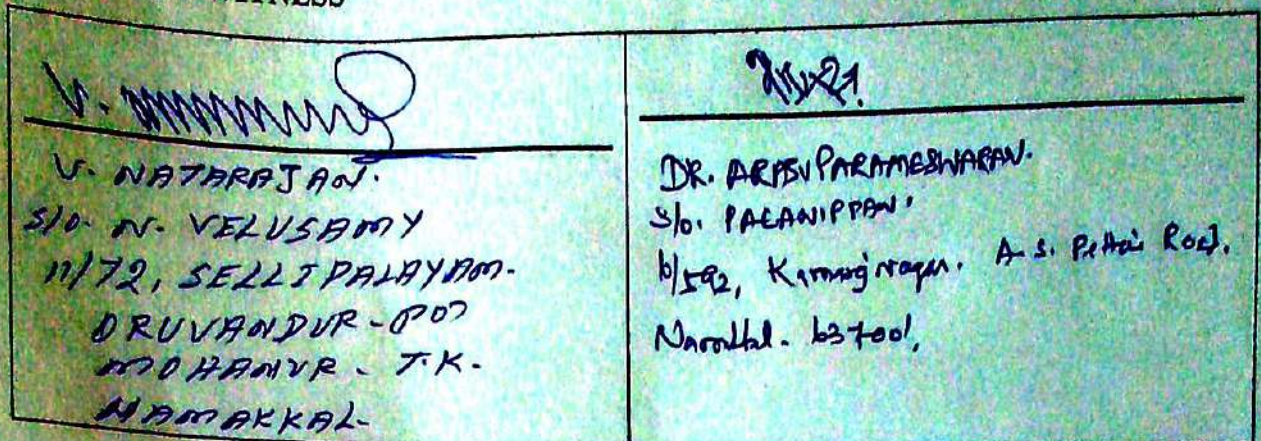 V. NATARAJAN.
S/O. N. VELUSAMY
11/72, SELLIPALAYAM.
ORUVANDUR - PO
MOHANUR - T.K.
NAMAKKAL
DR. ARASU PARAMESWARAN.
S/o. PALANIPPAN.
6/592, A.S. Pettai Road,
637001,